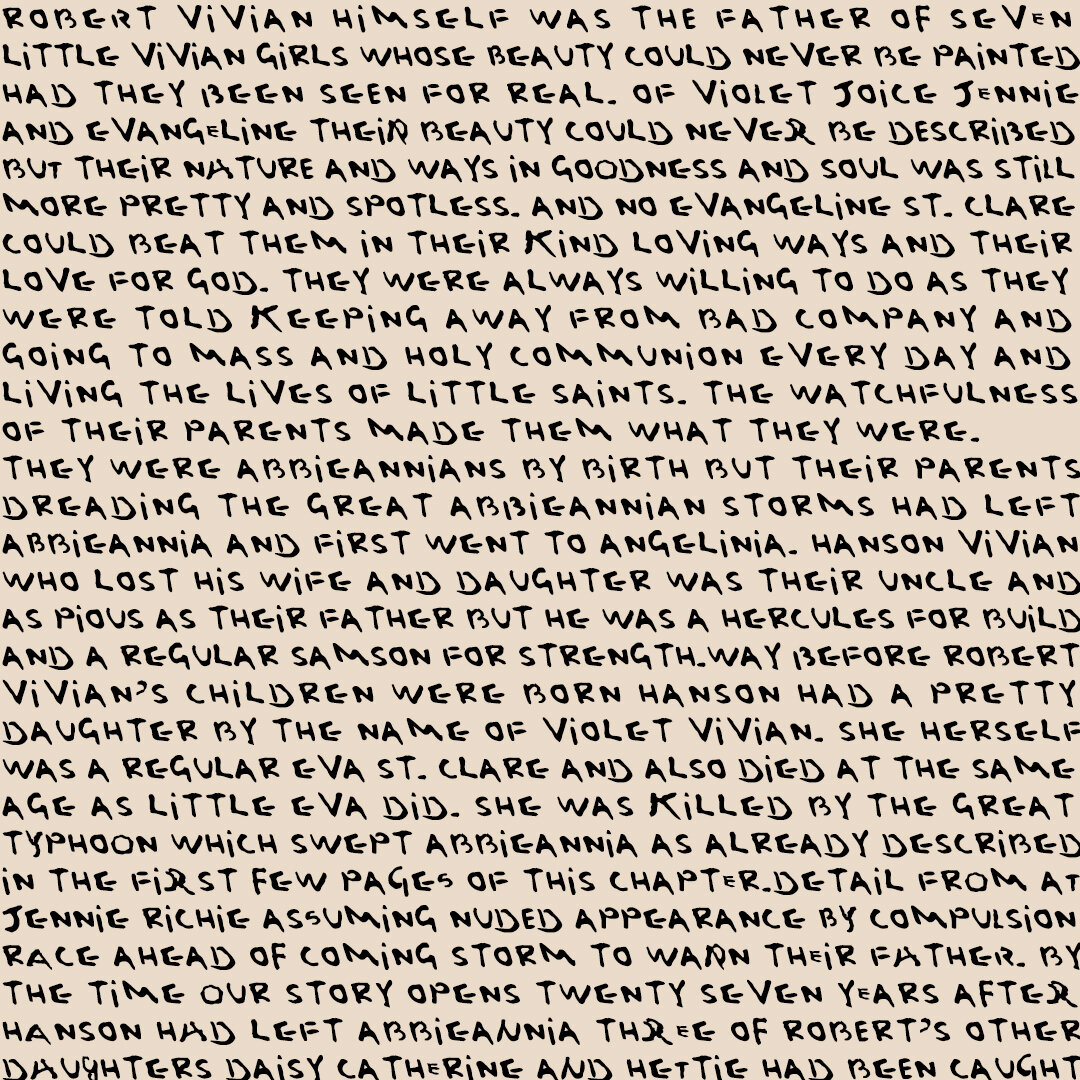 ROBERT ViViAN HiMSELF WAS THE FATHER OF SEVEN
LiTTLE ViViAN GiRLS WHOSE BEAUTY COULD NEVER BE PAiNTED
HAD THEY BEEN SEEN FOR REAL. OF ViOLET JOiCE JENNiE
AND EVANGELiNE THEiR BEAUTY COULD NEVER BE DESCRiBED
BUT THEiR NATURE AND WAYS iN GOODNESS AND SOUL WAS STiLL
MORE PRETTY AND SPOTLESS. AND NO EVANGELiNE ST. CLARE
COULD BEAT THEM iN THEiR KiND LOViNG WAYS AND THEiR
LOVE FOR GOD. THEY WERE ALWAYS WiLLiNG TO DO AS THEY
WERE TOLD KEEPiNG AWAY FROM BAD COMPANY AND
GOiNG TO MASS AND HOLY COMMUNiON EVERY DAY AND
LiViNG THE LiVES OF LiTTLE SAiNTS. THE WATCHFULNESS
OF THEiR PARENTS MADE THEM WHAT THEY WERE.
THEY WERE ABBiEANNiANS BY BiRTH BUT THEiR PARENTS
DREADiNG THE GREAT ABBiEANNiAN STORMS HAD LEFT
ABBiEANNiA AND FiRST WENT TO ANGELiNiA. HANSON ViViAN
WHO LOST HiS WiFE AND DAUGHTER WAS THEiR UNCLE AND
AS PiOUS AS THEiR FATHER BUT HE WAS A HERCULES FOR BUiLD
AND A REGULAR SAMSON FOR STRENGTH.WAY BEFORE ROBERT
ViViAN'S CHiLDREN WERE BORN HANSON HAD A PRETTY
DAUGHTER BY THE NAME OF ViOLET ViViAN. SHE HERSELF
WAS A REGULAR EVA ST. CLARE AND ALSO DiED AT THE SAME
AGE AS LiTTLE EVA DiD. SHE WAS KiLLED BY THE GREAT
TYPHOON WHiCH SWEPT ABBiEANNiA AS ALREADY DESCRiBED
iN THE FiRST FEW PAGES OF THiS CHAPTER.DETAiL FROM AT
JENNiE RiCHiE ASSUMiNG NUDED APPEARANCE BY COMPULSiON
RACE AHEAD OF COMiNG STORM TO WARN THEiR FATHER. BY
THE TiME OUR STORY OPENS TWENTY SEVEN YEARS AFTER
HANSON HAD LEFT ABBiEANNiA THREE OF ROBERT'S OTHER
DAUGHTERS DAiSY CATHERiNE AND HETTiE HAD BEEN CAUGHT